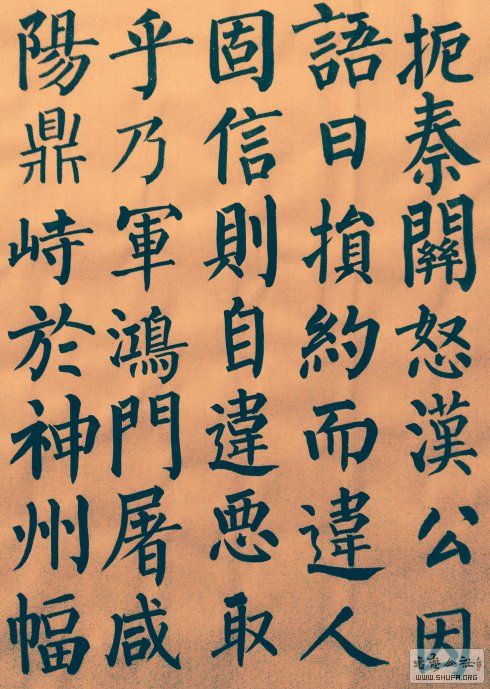 扼秦關怒漢公因
語曰損約而違人
固信則自違惡取
乎乃軍鴻門屠咸
陽鼎峙於神州幅
书法公社
WWW.SHUFA.ORG